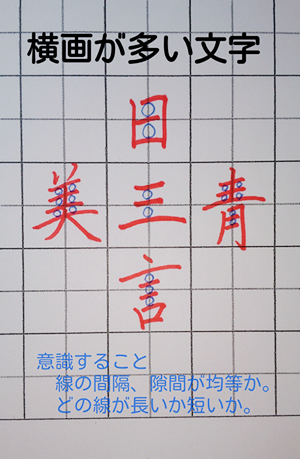 横画が多い文字
田
美 三 青
言
意識すること
線の間隔、隙間が均等か。
どの線が長いか短いか。